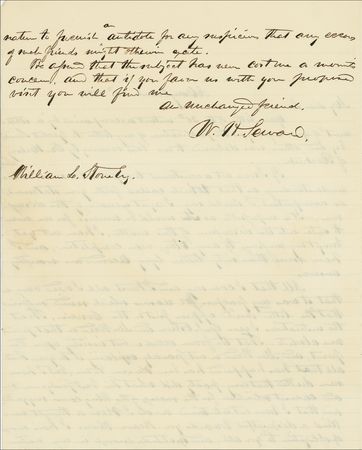 nature to furnish an antidote for any suspicions that any excess
of such friends might therein excite.
Be assured that the subject has never cost me a moments
concern, and that if you favor us with your proposed
visit you will find me
an unchanged friend.
W. H. Seward.
William L.